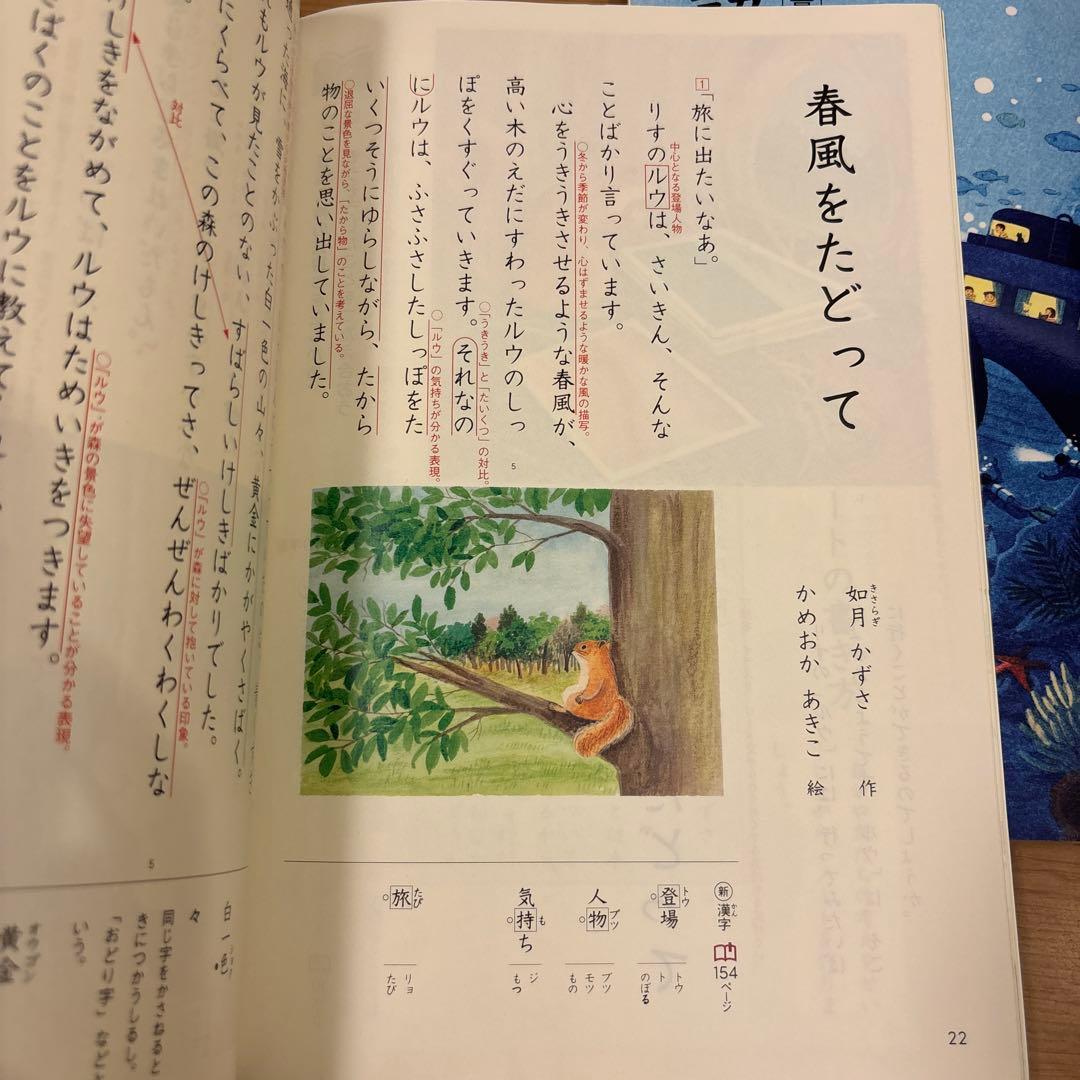 春風をたどって
如月 かずさ 作
きさらぎ
かめおか あきこ 絵
1 「旅に出たいなあ。」
中心となる登場人物
りすのルウは、さいきん、そんな
ことばかり言っています。
○冬から季節が変わり、心はずませるような暖かな風の描写。
心をうきうきさせるような春風が、
高い木のえだにすわったルウのしっ
ぽをくすぐっていきます。それなの
○「うきうき」と「たいくつ」の対比。
にルウは、ふさふさしたしっぽをた
○「ルウ」の気持ちが分かる表現。
いくつそうにゆらしながら、たから
○退屈な景色を見ながら、「たから物」のことを考えている。
物のことを思い出していました。
5
新 漢字 154ページ
かん
登場 トウ
トウ
ト
のぼる
人物 ブツ
ブツ
モツ
もの
気持ち も
ジ
もつ
旅 たび
リョ
たび
22
白一色の山々、黄金にかがやくさばく。
もルウが見たことのない、すばらしいけしきばかりでした。
にくらべて、この森のけしきってさ、ぜんぜんわくわくしな
○「ルウ」が森に対して抱いている印象。
対比
しきをながめて、ルウはためいきをつきます。
○「ルウ」が森の景色に失望していることが分かる表現。
ばくのことをルウに教えて
5
白一色
々
同じ字をかさねると
きにつかうしるし。
「おどり字」などと
いう。
黄金
オウゴン